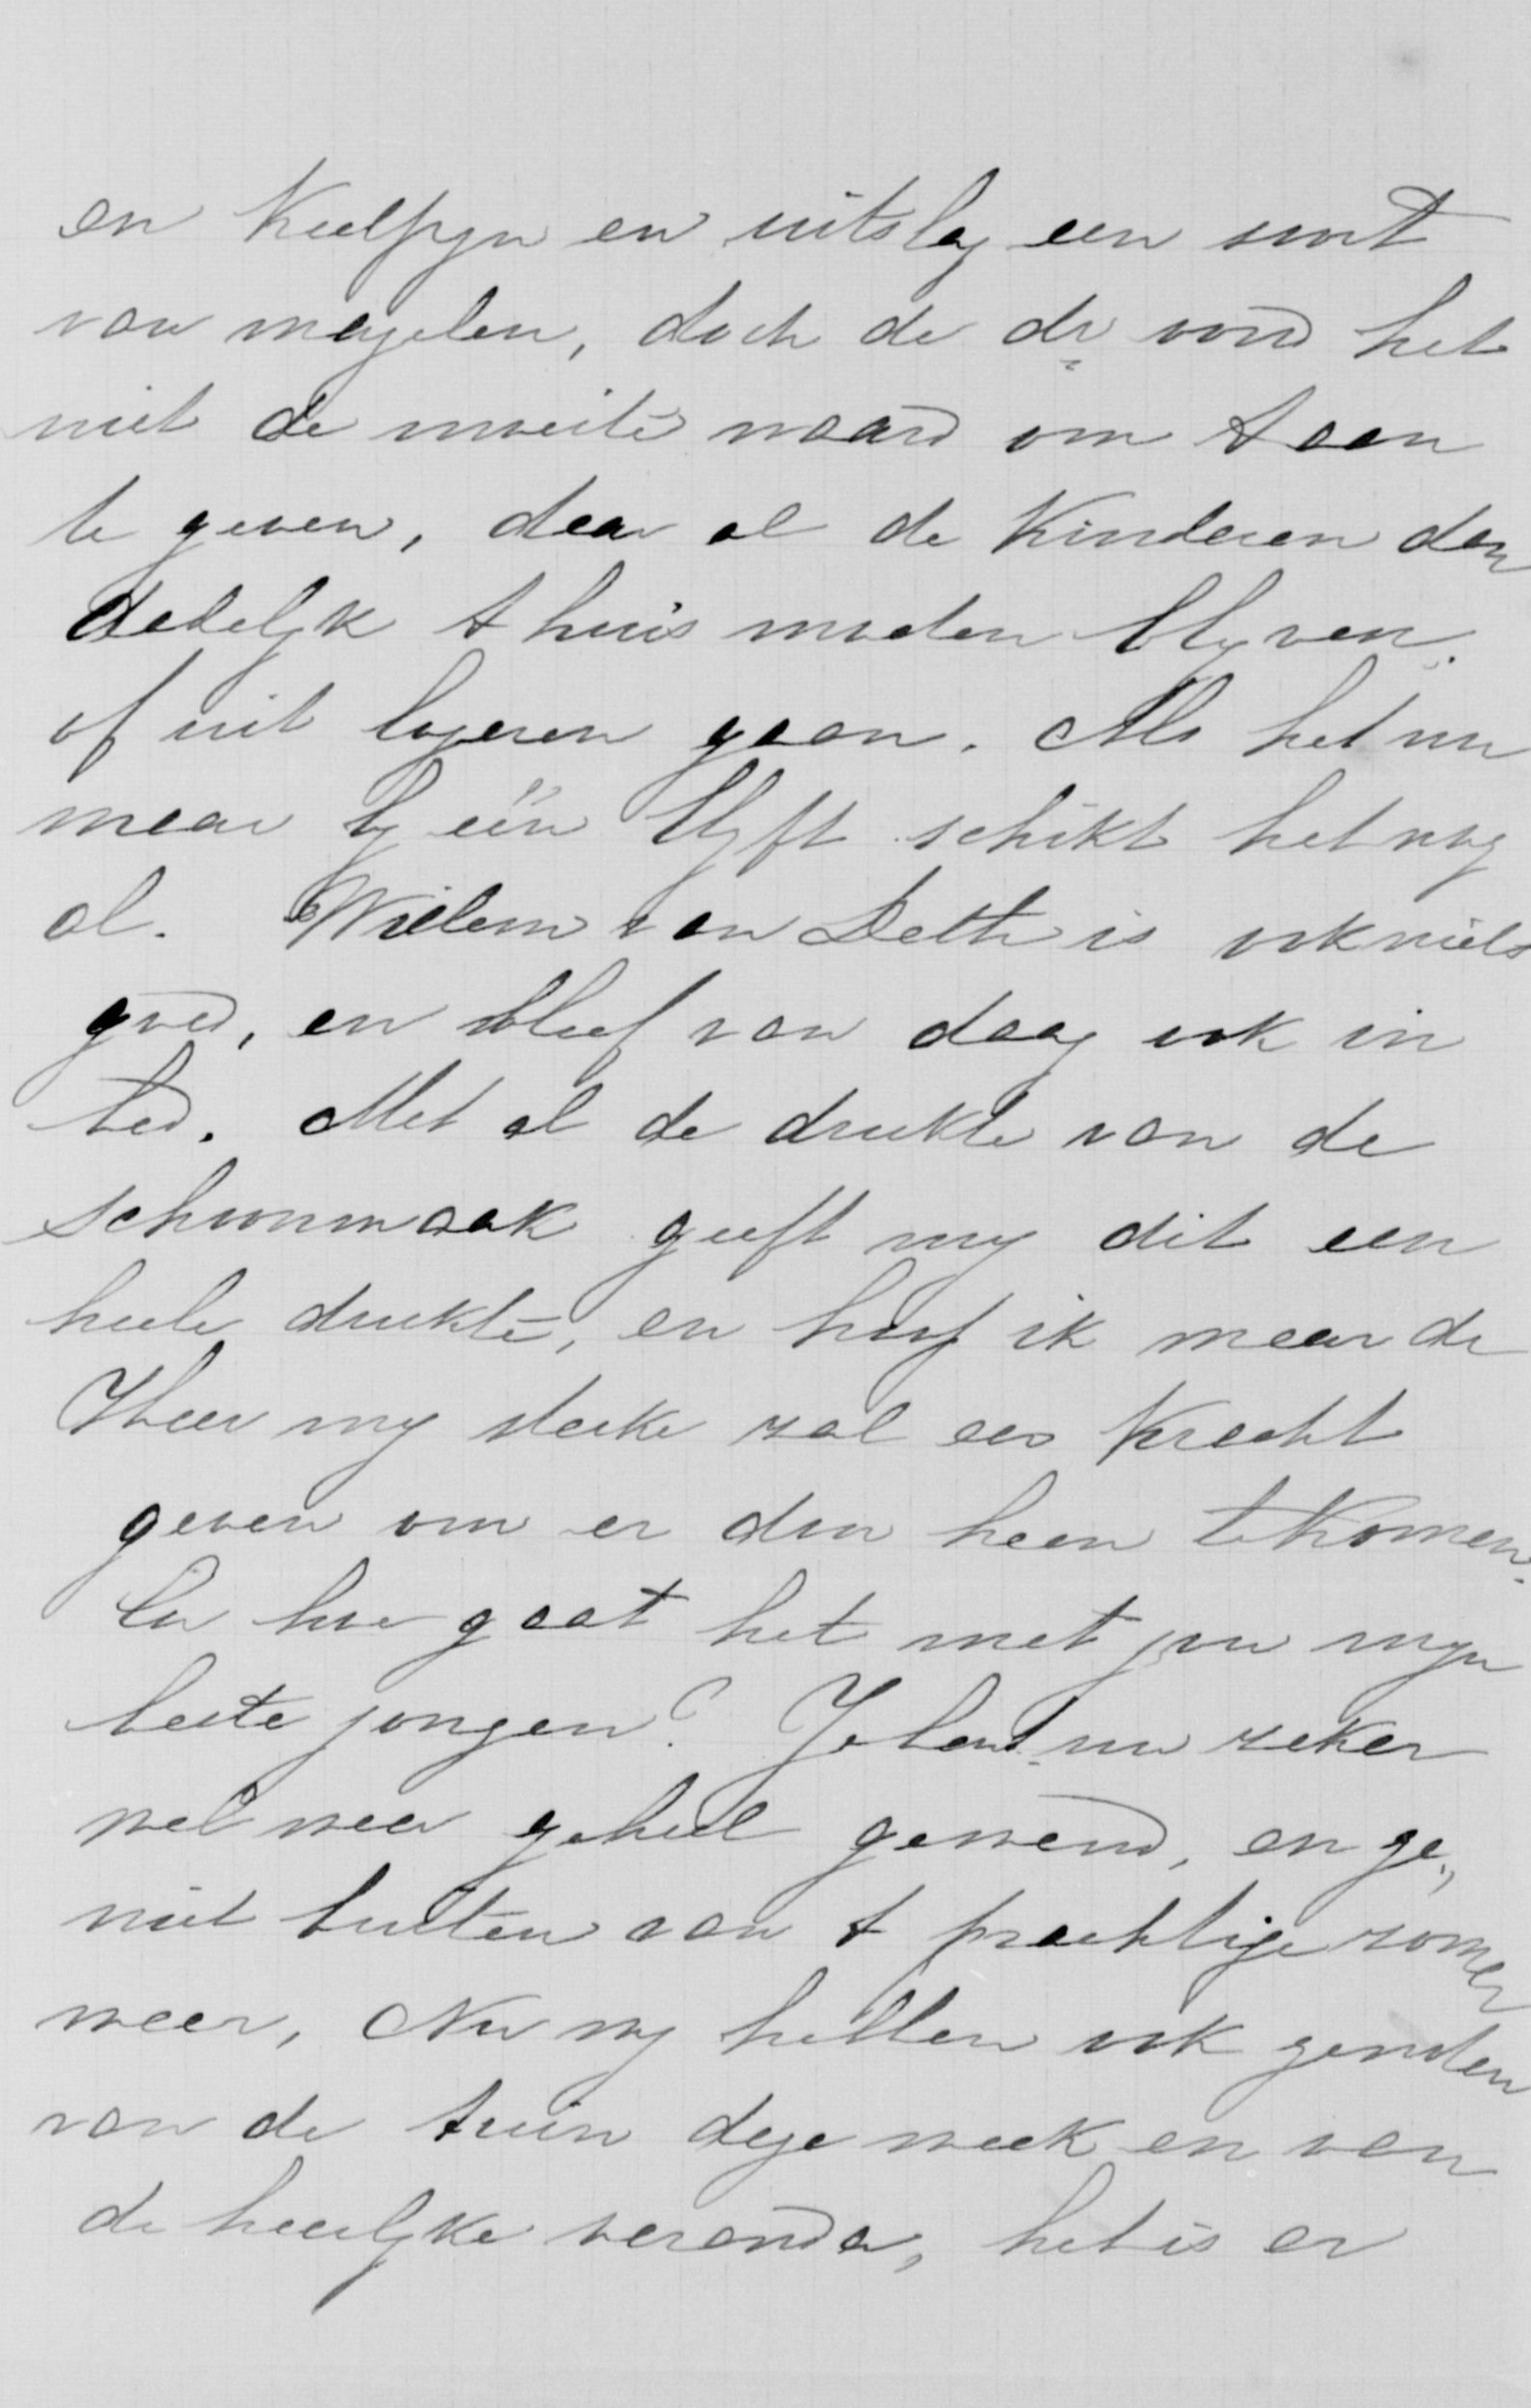 en Keelpyn en uitslag een soort
van mazelen, doch de dr vond het
niet de moeite waard om t aan
te geven, daar al de Kinderen dan
dadelyk t huis moeten blyven
of uit logeren gaan. Als het nu
maar by één blyft schikt het nog
al. Willem van Deth is ook niets
goed, en bleef van daag ook in
bed. Met al de drukte van de
schoonmaak geeft my dit een
heele drukte, en hoop ik maar de
Heer my sterke zal en Kracht
geven om er door heen te Komen.
En hoe gaat het met jou myn
beste jongen? Je bent nu zeker
wel weer geheel gewend, en ge„
niet buiten van t prachtige zomer
weer, Nu wy hebben ook genoten
van de tuin deze week en van
de heerlyke veranda, het is er